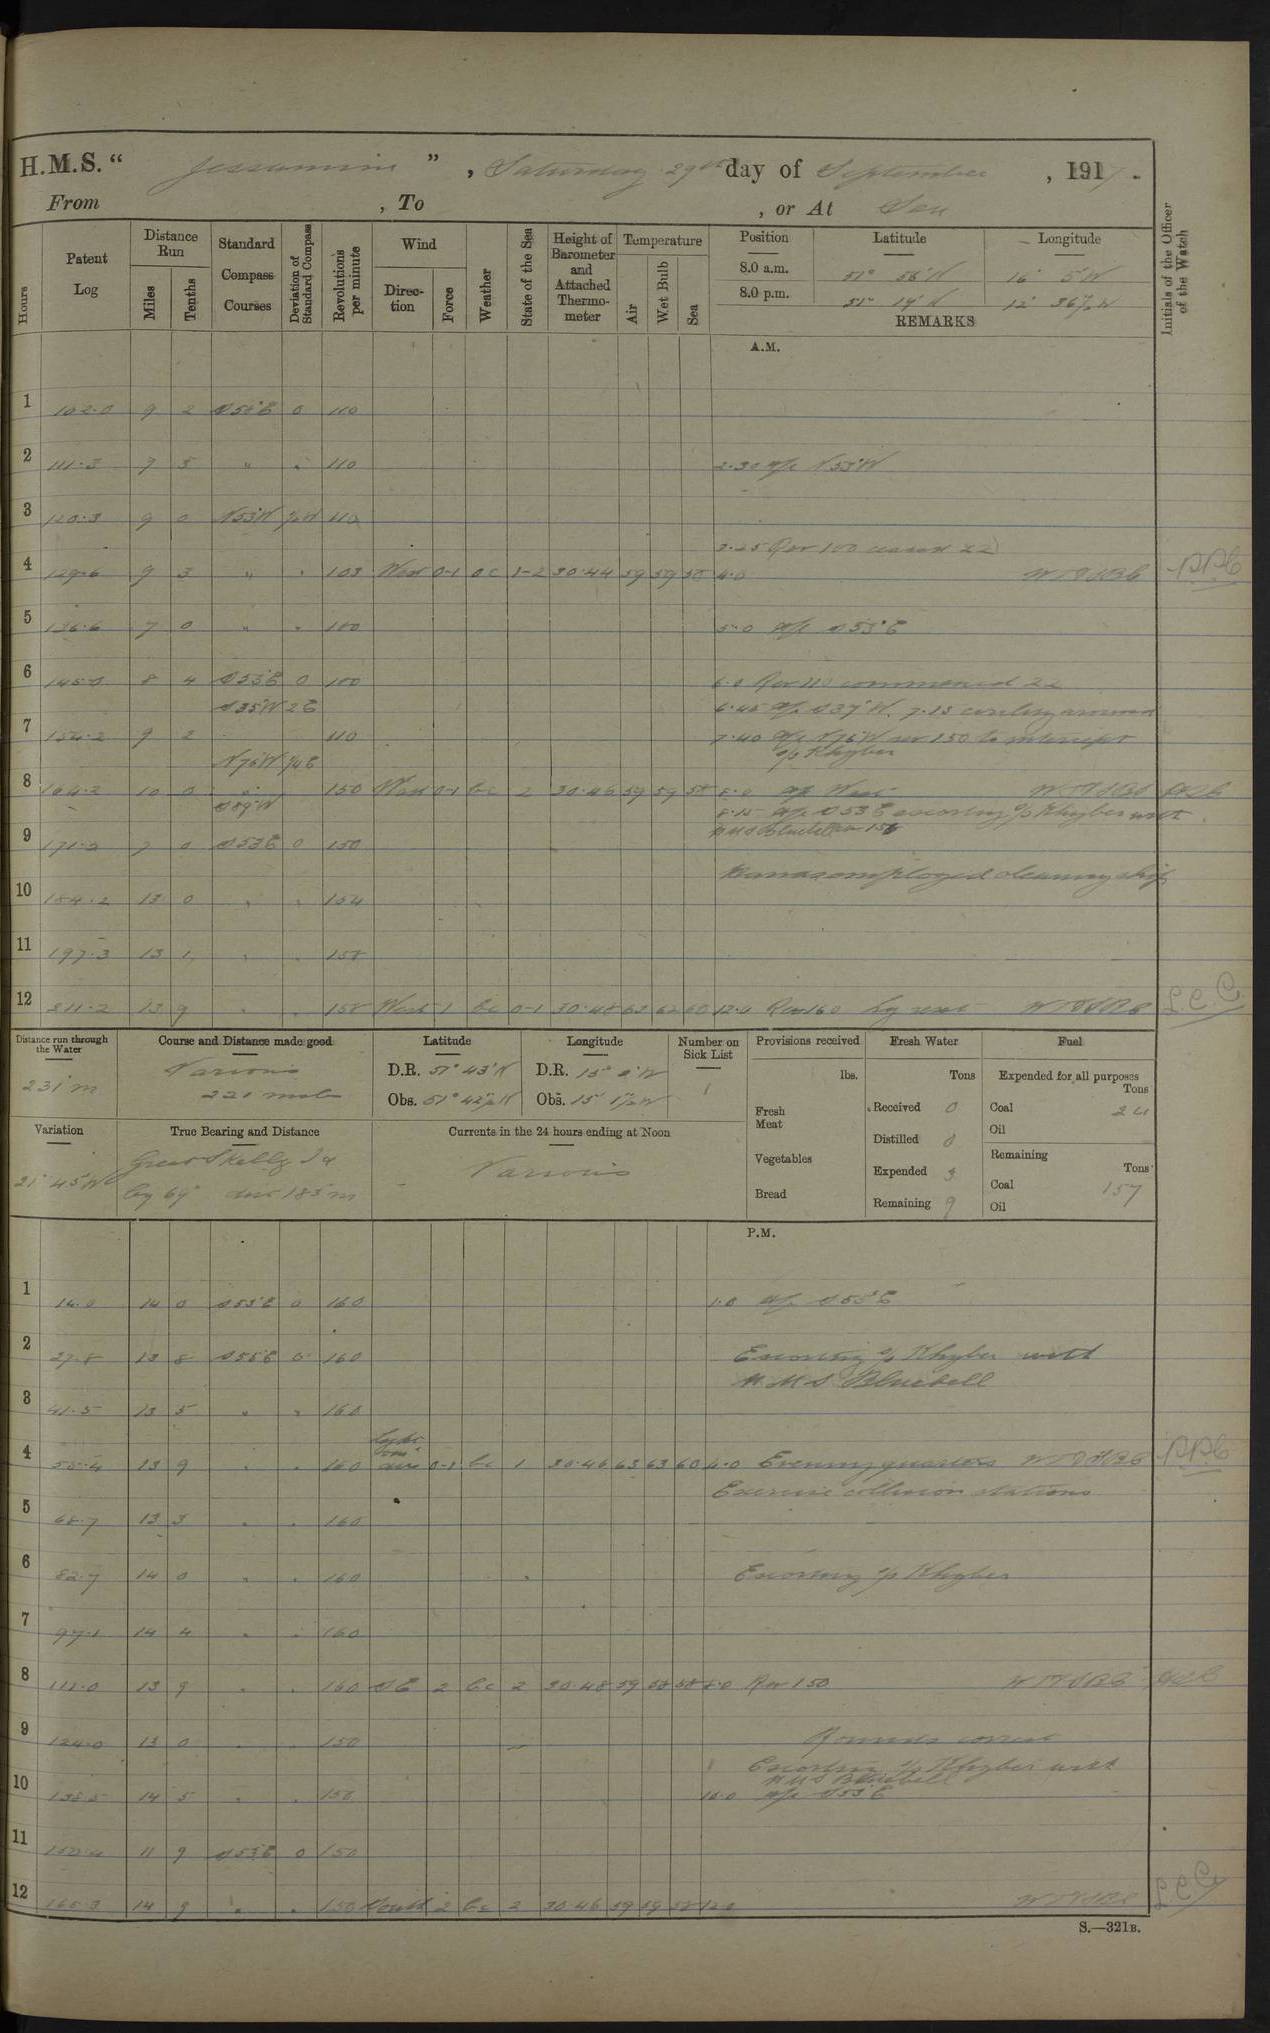 H.M.S. “ Jessamine ” , Saturday 29th day of September , 1917.
From , To , or At Sea
Hours
Patent Log
Distance Run
Miles
Tenths
Standard Compass Courses
Deviation of Standard Compass
Revolutions per minute
Wind
Direction
Force
Weather
State of the Sea
Height of Barometer and Attached Thermometer
Temperature
Air
Wet Bulb
Sea
Position Latitude Longitude
8.0 a.m. 51° 58' N 16° 5' W
8.0 p.m. 51° 19' N 12° 36½ W
REMARKS
Initials of the Officer of the Watch
A.M.
1 102.0 9 2 S55°E 0 110
2 111.3 9 3 " " 110 2.30 a/c N53°W
3 120.3 9 0 N53°W 110
3.25 Rev 100 ceased ZZ
4 129.6 9 3 " " 103 West 0-1 oc 1-2 30.44 59 59 58 4.0
5 136.6 7 0 " " 100 5.0 a/c S53°E
6 145.0 8 4 S53E 0 100 6.0 Rev 110 commenced ZZ
S35°W 2E 6.45 a/c S37°W. 7.15 circling around
7 154.2 9 2 110 7.40 a/c N76°W rev 150 to intercept
N76W s/s Khyber
8 164.2 10 0 " 150 West 0-1 bc 2 30.46 59 59 58 8.0 a/c West
S89°W 8.15 a/c S53E escorting s/s Khyber with
H.M.S Bluebell
9 171.2 7 0 S53E 0 150
Hands employed cleaning ship
10 184.2 13 0 " " 154
11 197.3 13 1 " " 158
12 211.2 13 9 " " 158 West 1 bc 0-1 30.48 63 62 60 12.0 Rev 160
Distance run through the Water
231 m
Course and Distance made good
Various
221 miles
Latitude
D.R. 51° 43' N
Obs. 51° 42½ N
Longitude
D.R. 15° 2' W
Obs. 15° 1½ W
Number on Sick List
1
Provisions received
lbs.
Fresh Meat
Vegetables
Bread
Fresh Water
Tons
Received 0
Distilled 0
Expended 3
Remaining 9
Fuel
Expended for all purposes
Tons
Coal 24
Oil
Remaining
Tons
Coal 157
Oil
Variation
21° 45' W
True Bearing and Distance
Great Skellig
69° dist 185 m
Currents in the 24 hours ending at Noon
Various
P.M.
1 14.0 14 0 S53°E 0 160 1.0 a/c S55°E
2 27.8 13 8 S55E 0 160 Escorting s/s Khyber with
H.M.S Bluebell
3 41.3 13 5 " " 160
4 55.4 13 9 " " 160 Light airs 0-1 bc 1 30.46 63 63 60 4.0 Evening quarters
Exercise collision stations
5 68.7 13 3 " " 160
6 82.7 14 0 " " 160 Escorting s/s Khyber
7 97.1 14 4 " " 160
8 111.0 13 9 " " 160 SE 2 bc 2 30.48 59 58 58 8.0 Rev 150
9 124.0 13 0 " " 150 Rounds correct
Escorting s/s Khyber with
H.M.S Bluebell
10 138.5 14 5 " " 150 10.0 a/c S53°E
11 150.4 11 9 S53°E 0 150
12 165.3 14 9 " " 150 South 2 bc 2 30.46 59 59 58 12.0
S.—321B.